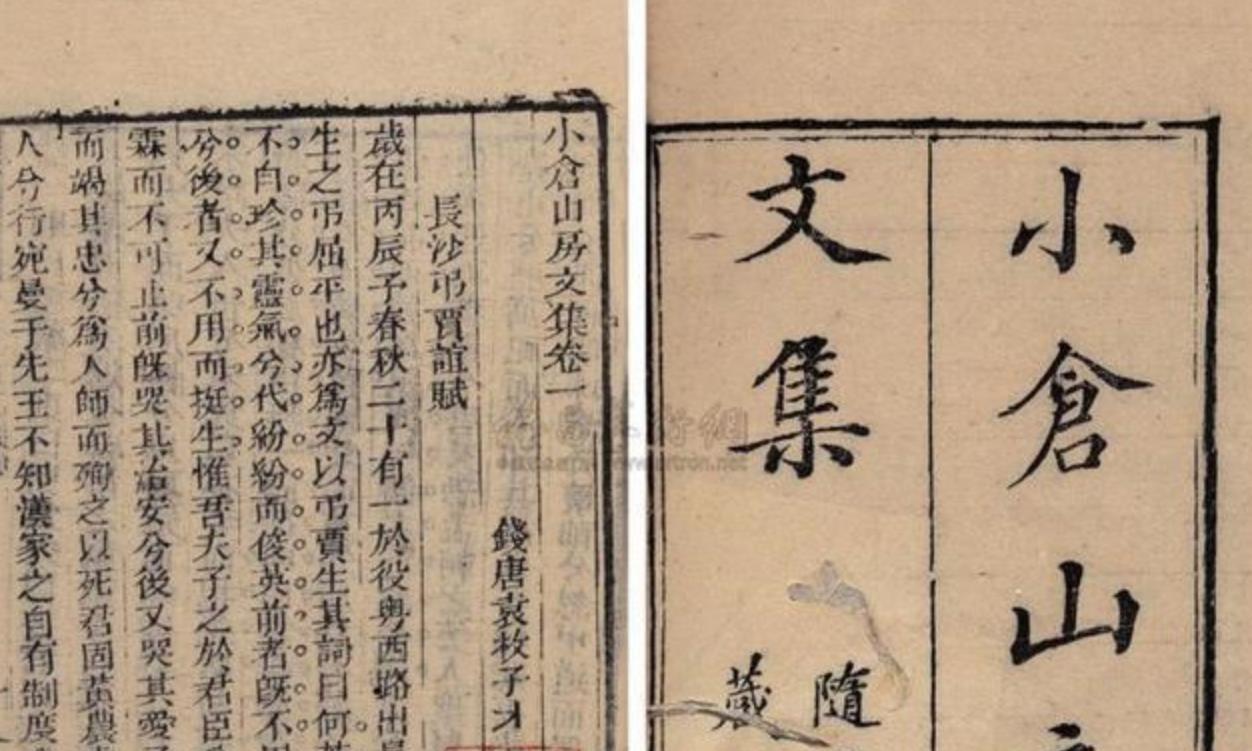 小倉山
文集
隨
藏
小倉山房文集卷一
錢唐袁枚子才
長沙弔賈誼賦
歲在丙辰予春秋二十有一於役粵西路出
生之弔屈平也亦爲文以弔賈生其詞曰何
不白珍其靈氣兮代紛紛而俊英前者旣不
兮後者又不用而挺生惟吾夫子之於君臣
霖而不可止前旣哭其治安兮後又哭其愛
而竭其忠兮爲人師而殉之以死君固黃農
人兮行宛曼于先王不知漢家之自有制度